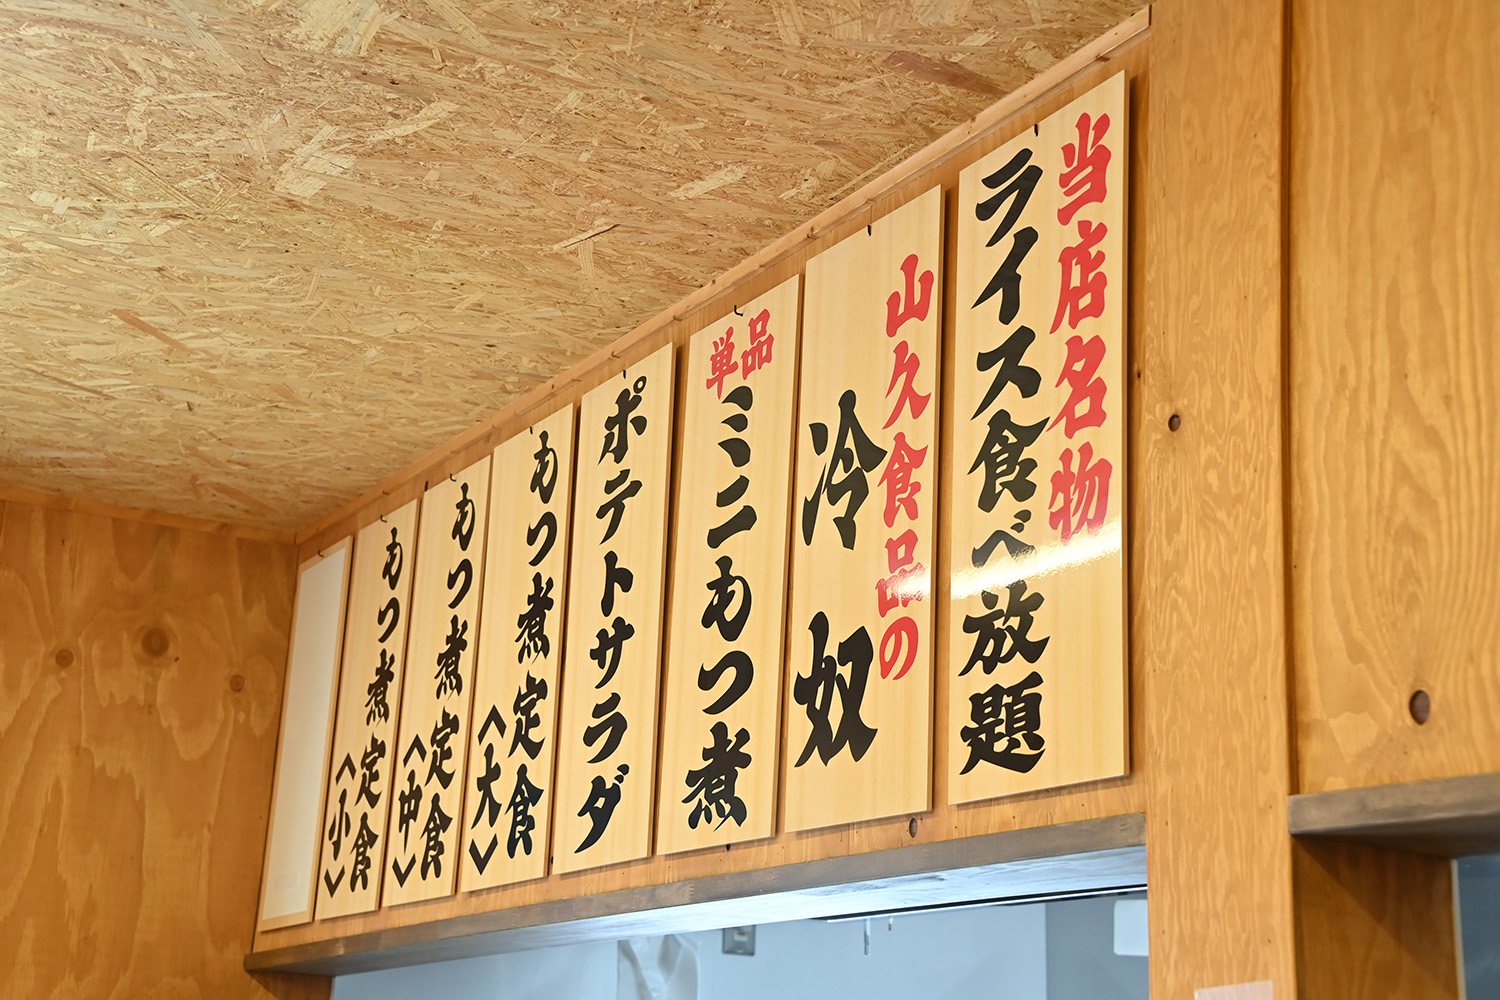 当店名物
ライス食べ放題
山久食品の
冷奴
単品
ミニもつ煮
ポテトサラダ
もつ煮定食
〈大〉
もつ煮定食
〈中〉
もつ煮定食
〈小〉